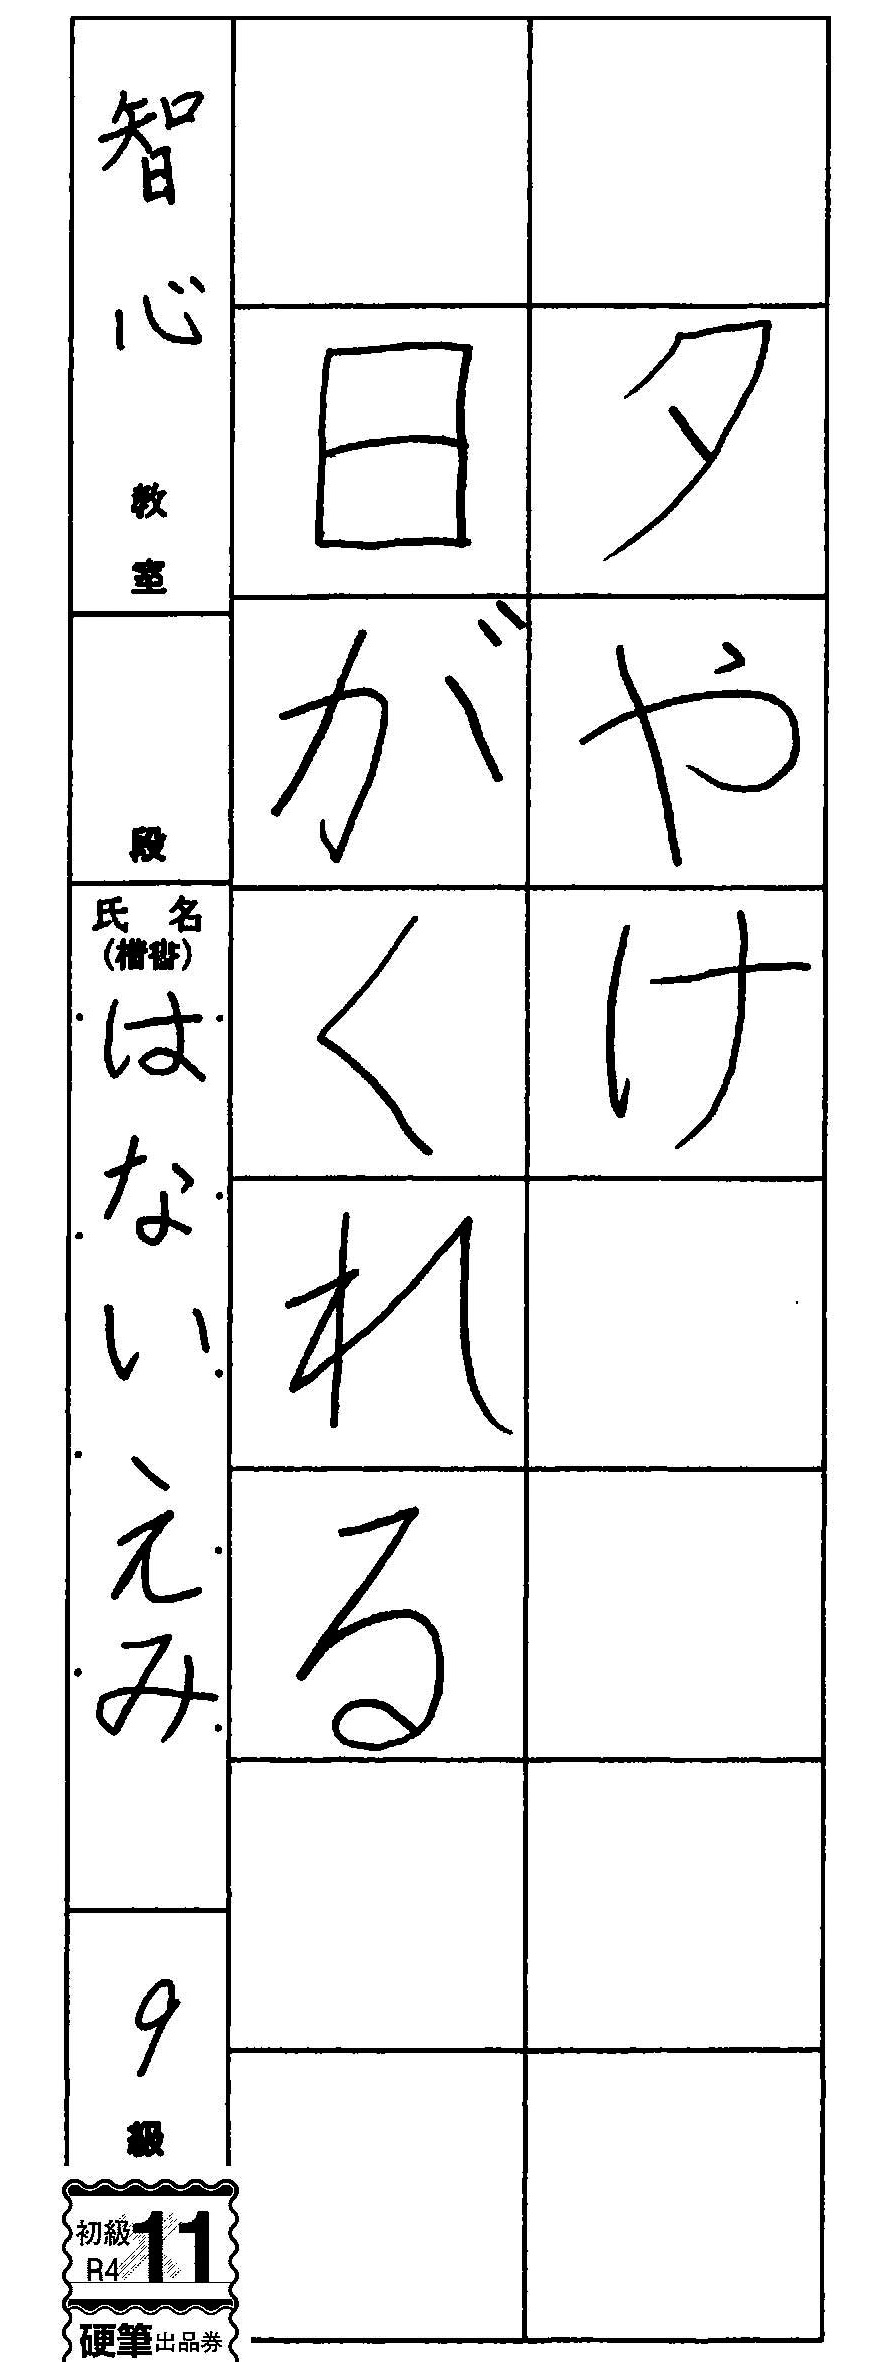 夕やけ
日がくれる
智心教室
段
氏名
(楷書)
はないえみ
9級
初級
R4
11
硬筆出品券